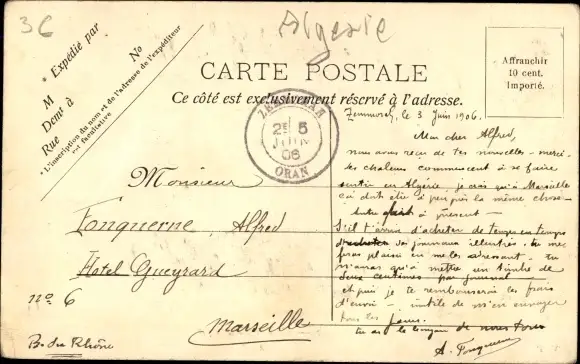 36
Algérie
* Expédié par
M
Demt à
Rue
No
* L'inscription du nom et de l'adresse de l'expéditeur
est facultative
CARTE POSTALE
Ce côté est exclusivement réservé à l'adresse.
Affranchir
10 cent.
Importé.
2E 5
JUIN
06
ORAN
Monsieur
Fonquerne, Alfred
Hotel Gueyrard
no 6
Marseille
B. du Rhône
le 3 Juin 1906.
Mon cher Alfred,
nous avons reçu de tes nouvelles - merci -
les chaleurs commencent à se faire
sentir en Algérie, je crois qu'à Marseille
ça doit être à peu près la même chose -
à présent -
S'il t'arrive d'acheter de temps en temps
journaux illustrés - tu me
feras plaisir en me les adressant - tu
n'auras qu'à mettre un timbre de
deux centimes par journal -
et puis je te rembourserai les frais
d'envoi - inutile de m'en envoyer
tous les jours.
de nous tous
A. Fonquerne